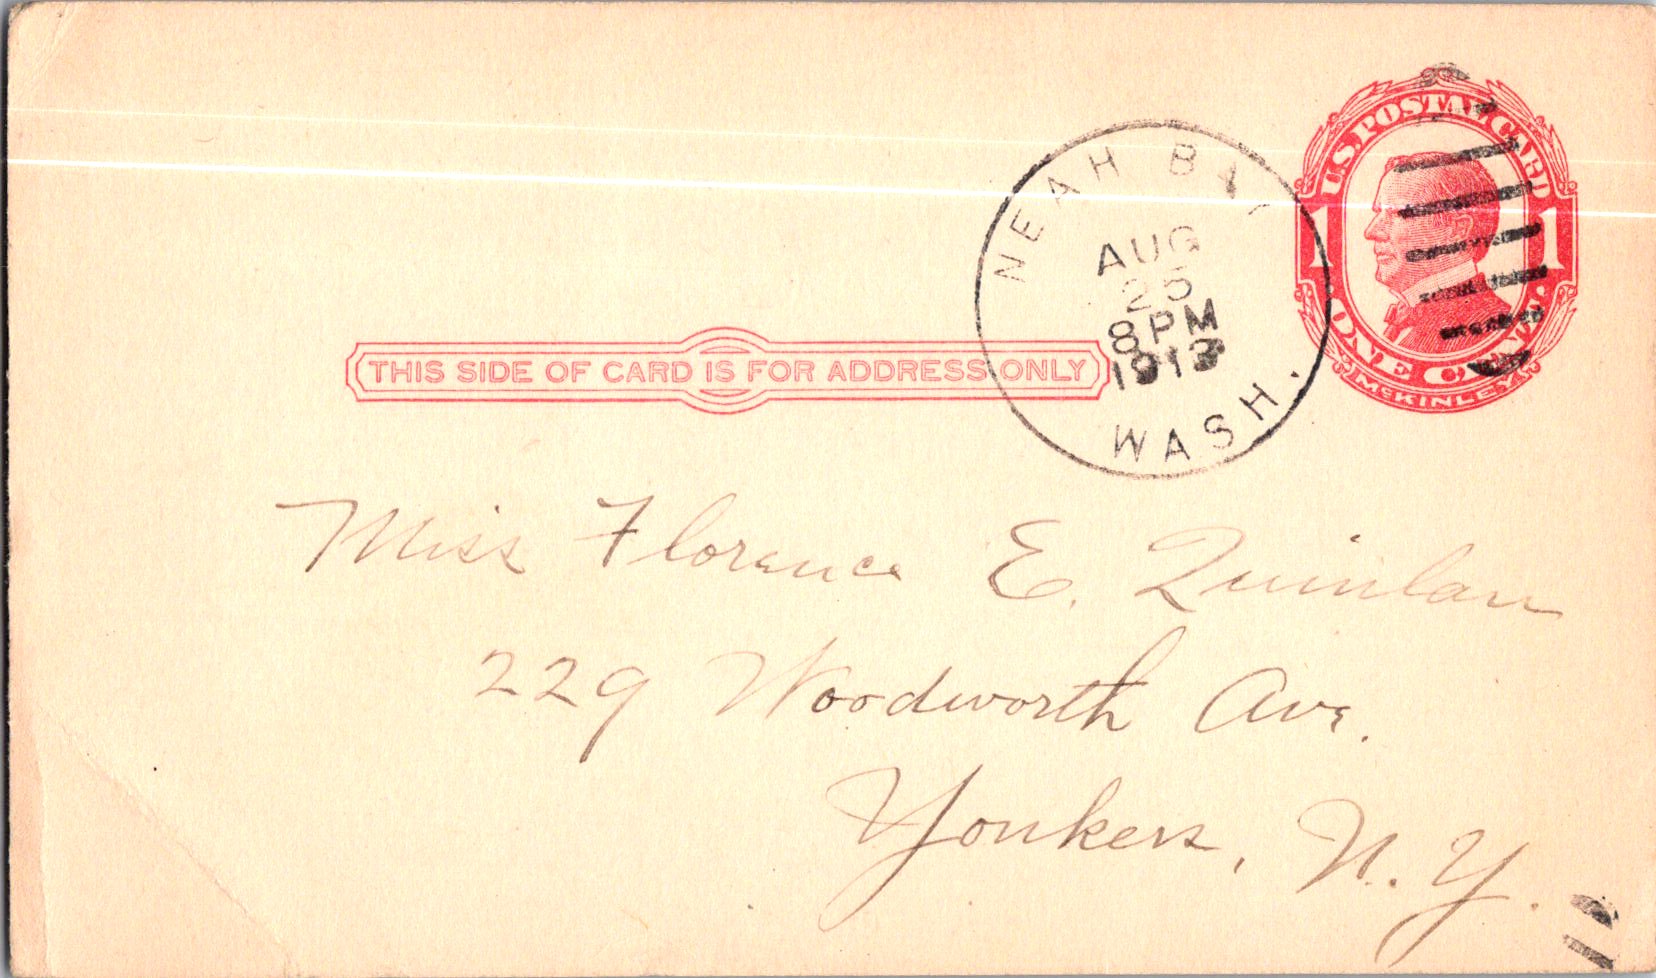 U.S. POSTAL CARD
1 1
ONE CENT.
McKINLEY
NEAH BAY
AUG
25
8 PM
1913
WASH.
THIS SIDE OF CARD IS FOR ADDRESS ONLY
Miss Florence E. Quinlan
229 Woodworth Ave.
Yonkers, N. Y.